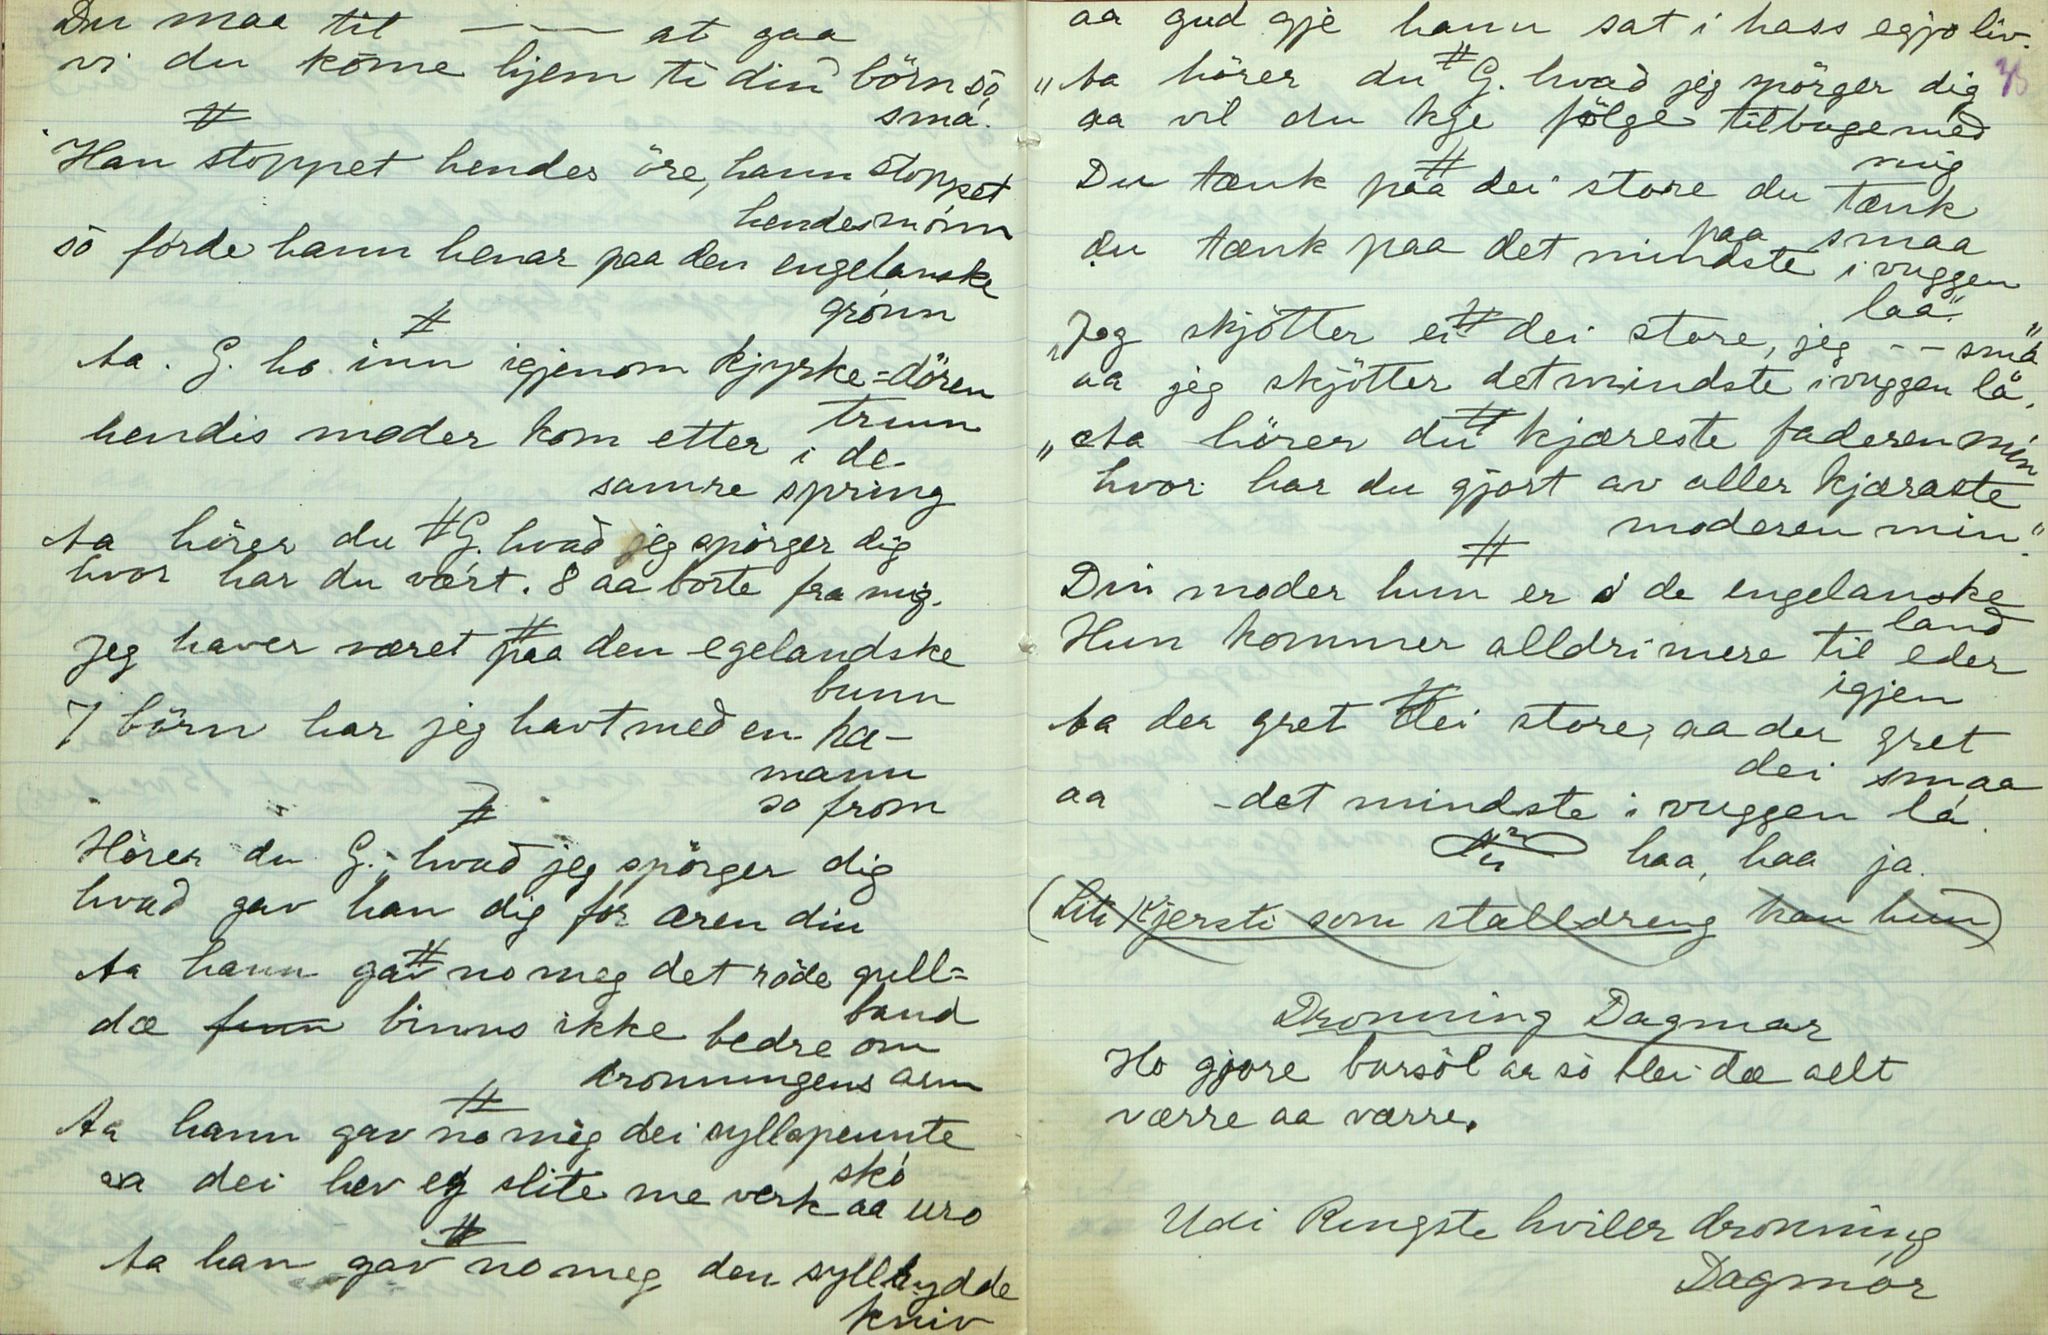 Du maa til — — at gaa
vi du kome hjem ti din börn så
små.
#
Han stoppet hendes öre, hann stoppet
hendes mónn
só förde hann henar paa den engelanske
grónn
#
Aa. G. ho inn igjenom kjyrke=dören
trunn
hendis moder kom etter i de
samre spring
Aa hörer du # G. hvad jeg spörger dig
hvor har du vært. 8 aa borte fra mig.
Jeg haver været # paa den egelandske
bunn
7 börn har jeg havt med en ha-
mann
so from
#
Hörer du G. hvad jeg spörger dig
hvad gav han dig for æren din
Aa hann gav # no meg det röde gull=
band
dæ finn binns ikke bedre om
dronningens arm
#
Aa hann gav no mig dei syllspennte
skó
aa dei hev eg slite me verk aa uro
#
Aa han gav no meg den syllbydde
kniv
aa gud gje hann sat i hass egjo liv.
38
"Aa hörer du # G. hvad jeg spörger dig
aa vil du kje fölge tilbage med
mig
#
Du tænk paa dei store du tænk
paa smaa
du tænk paa det mindste i vuggen
laa."
"Jeg skjötter ei # dei store, jeg - - små"
aa jeg skjötter det mindste i vuggen lå.
"Aa hörer du # kjæreste faderen min
hvor har du gjort av aller kjæraste
moderen min."
#
Din moder hun er i de engelanske
land
Hun kommer alldri mere til eder
igjen
Aa der gret # dei store, aa der gret
dei smaa
aa - det mindste i vuggen lá.
haa, haa ja.
(Liti Kjersti som stalldreng han hun)
Dronning Dagmar
Ho gjore barsöl aa só blei dæ aelt
værre aa værre.
Udi Ringste hviler dronning
Dagmór